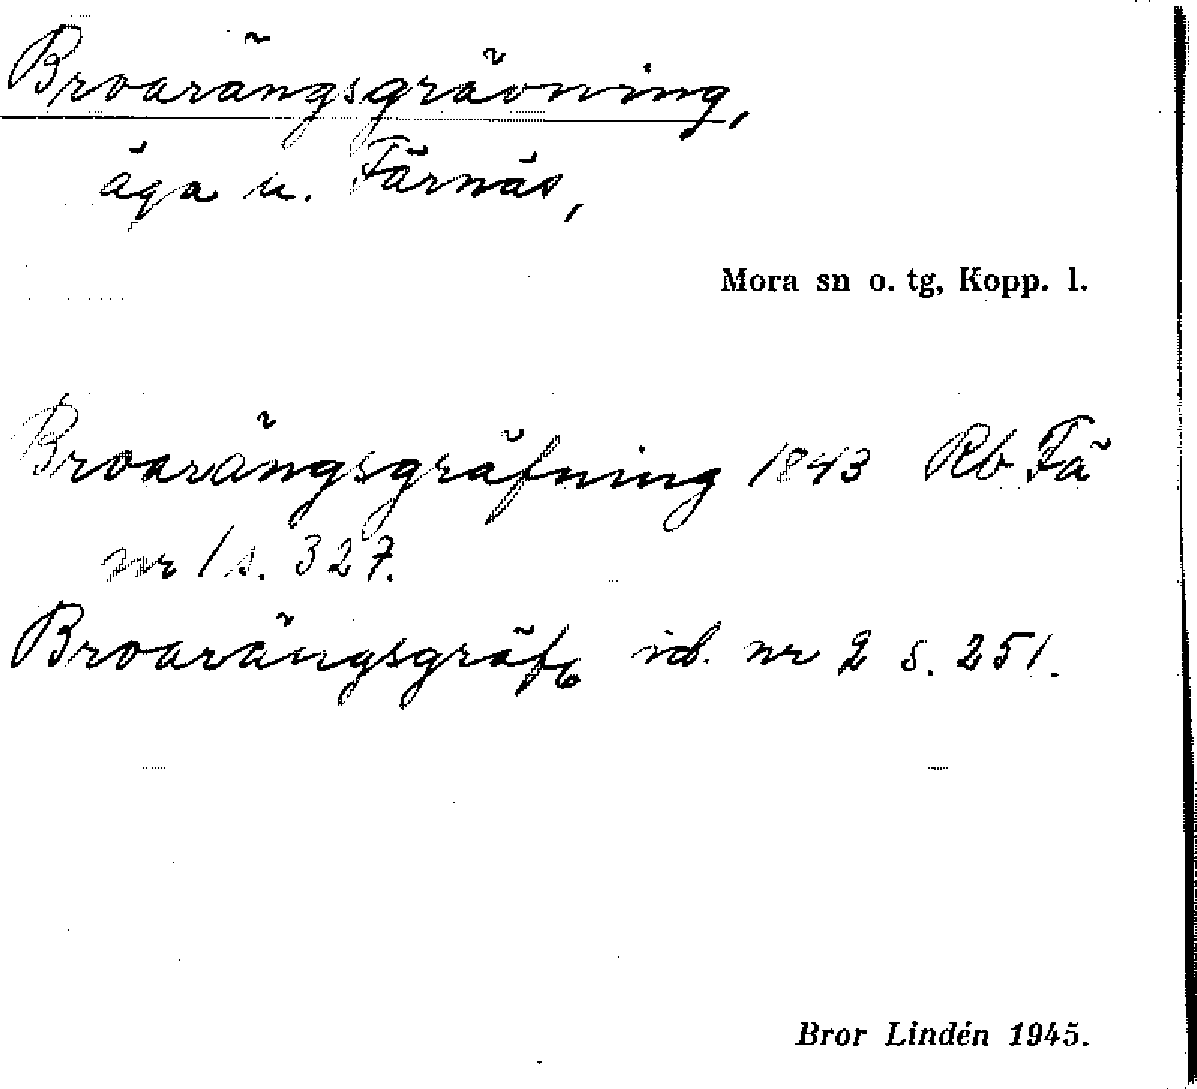 Broarängsgrävning,
äga u. Färnäs,
Mora sn o. tg, Kopp. l.
Broarängsgräfning 1843 Rb Fä
nr 1 s. 327.
Broarängsgräfn id. nr 2 s. 251.
Bror Lindén 1945.